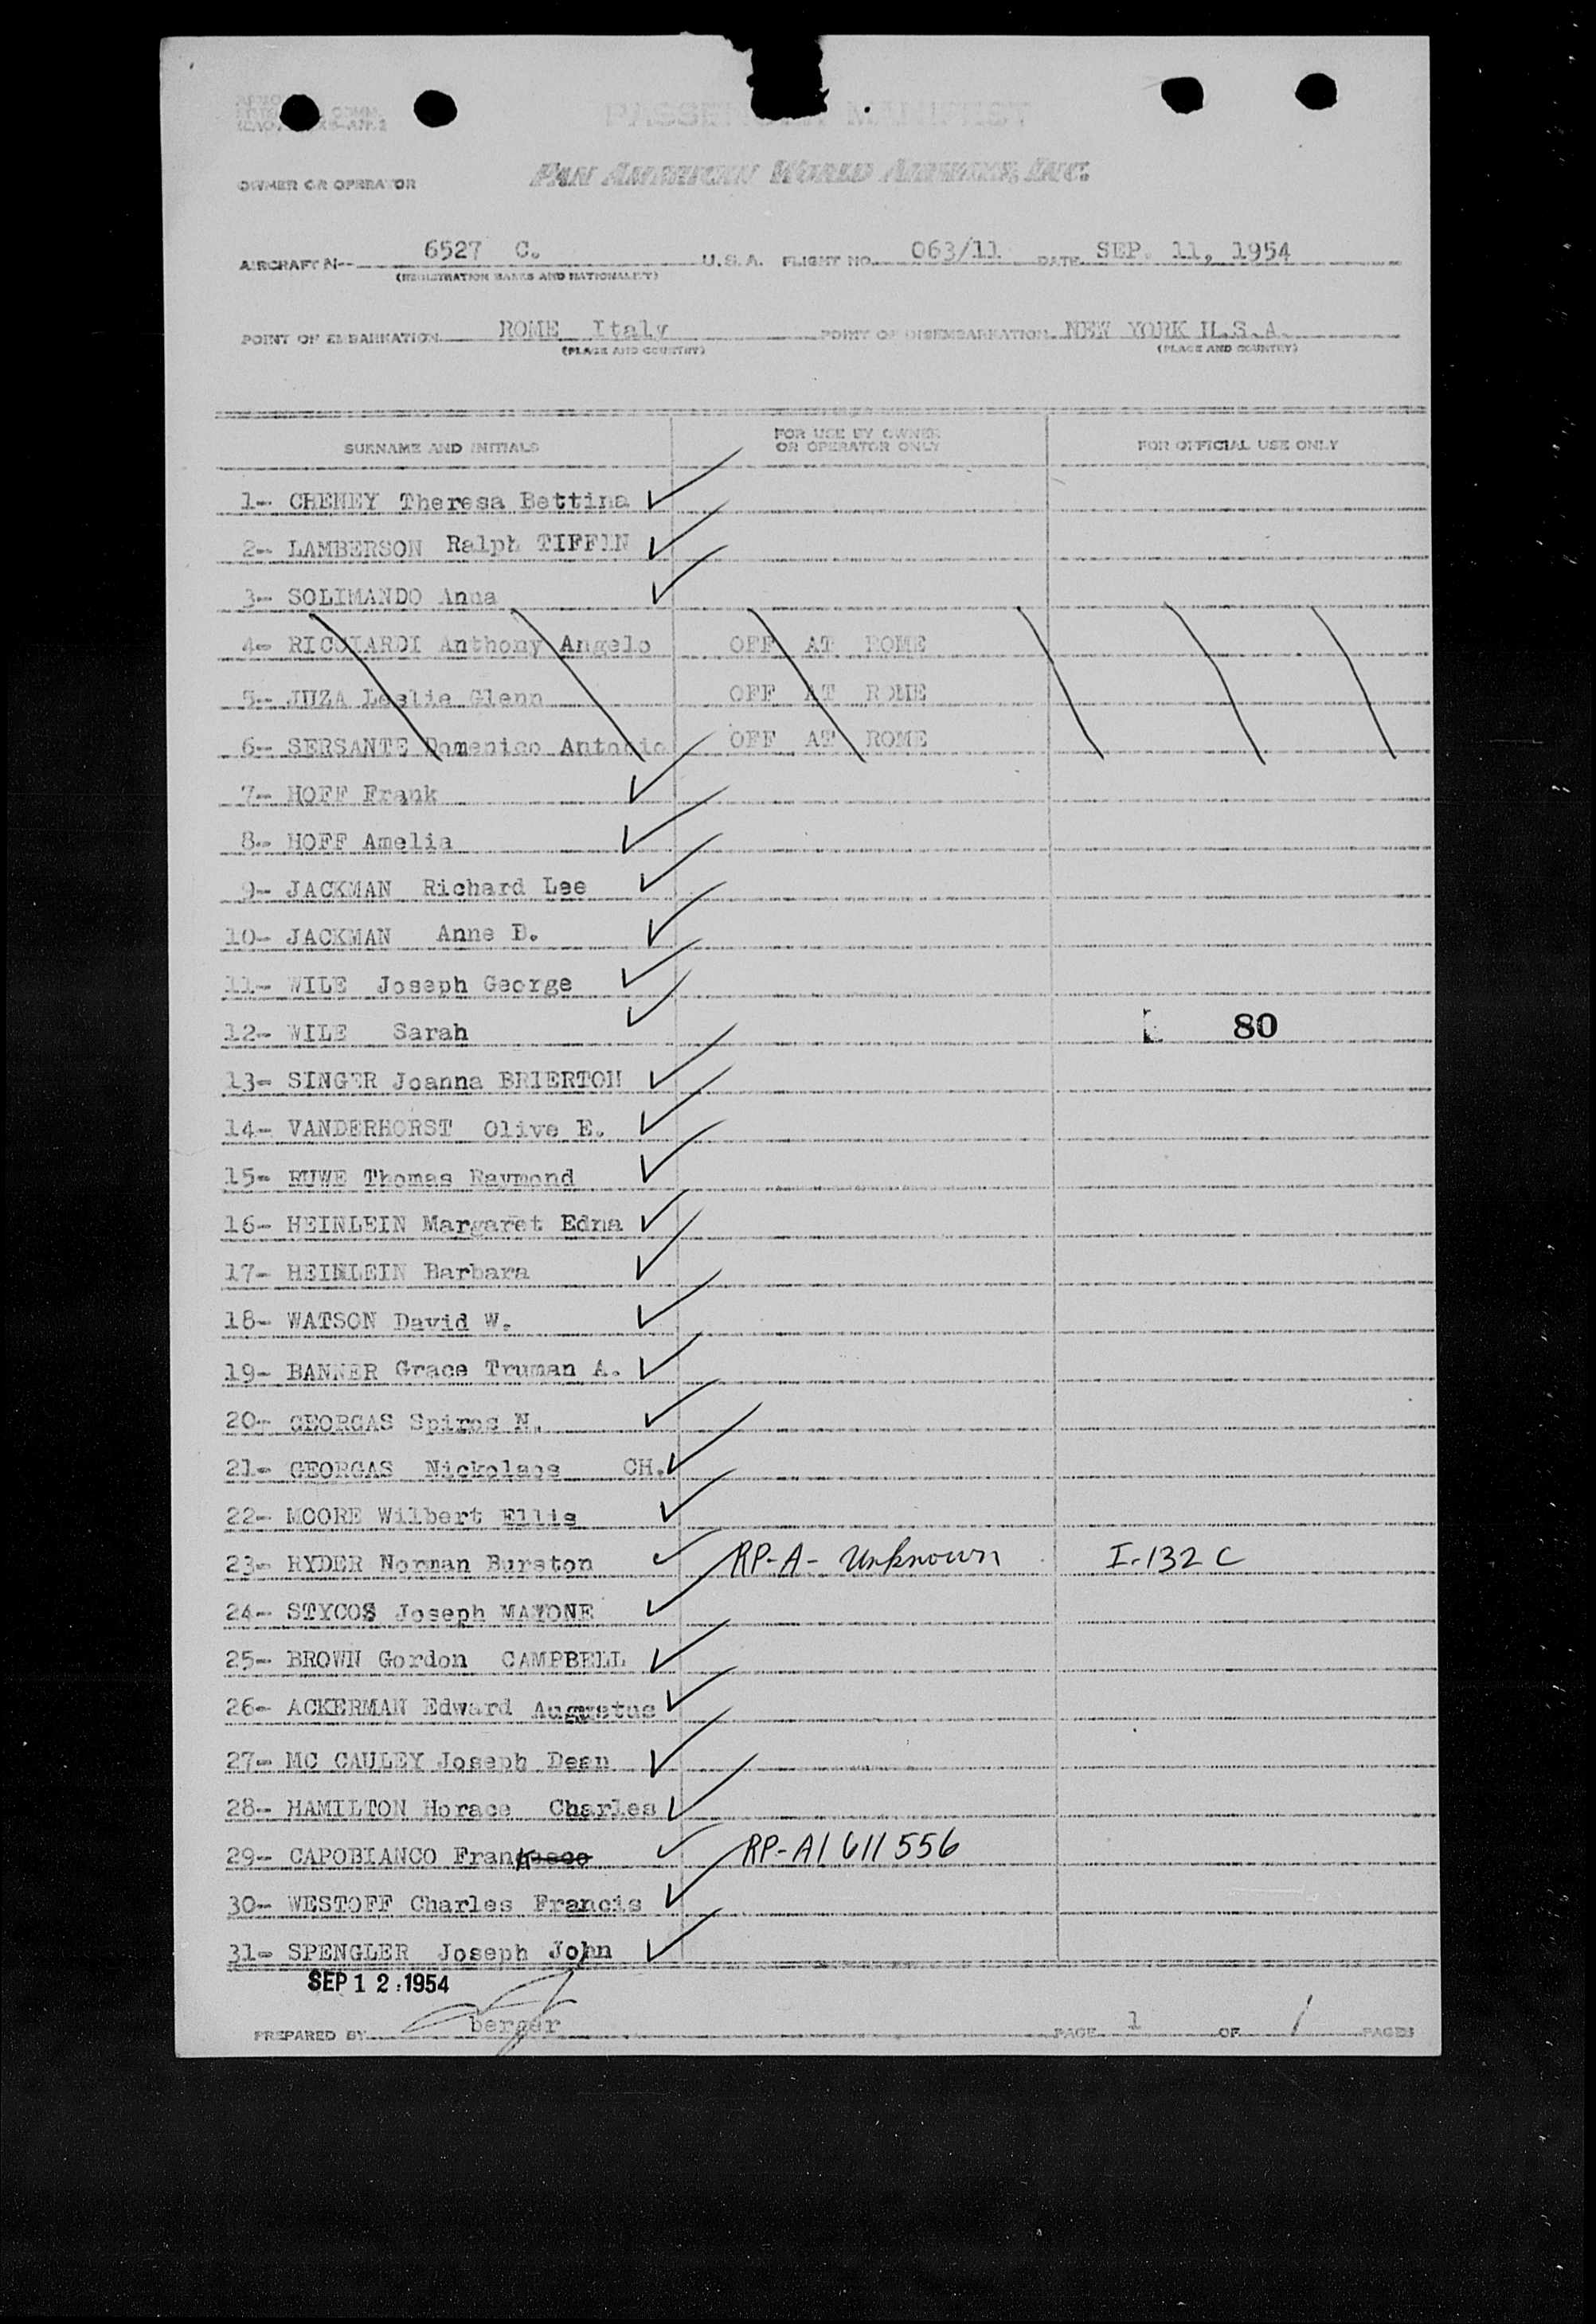 PASSENGER MANIFEST
PAN AMERICAN WORLD AIRWAYS, INC.
OWNER OR OPERATOR
AIRCRAFT N-- 6527 C. U.S.A. FLIGHT NO. 063/11 DATE SEP. 11, 1954
(REGISTRATION MARKS AND NATIONALITY)
POINT OF EMBARKATION ROME Italy POINT OF DISEMBARKATION NEW YORK U.S.A.
(PLACE AND COUNTRY) (PLACE AND COUNTRY)
SURNAME AND INITIALS FOR USE BY OWNER OR OPERATOR ONLY FOR OFFICIAL USE ONLY
1- CHENEY Theresa Bettina
2- LAMBERSON Ralph TIFFIN
3- SOLIMANDO Anna
4- RICCIARDI Anthony Angelo OFF AT ROME
5- JUZA Leslie Glenn OFF AT ROME
6- SERSANTE Domenico Antonio OFF AT ROME
7- HOFF Frank
8- HOFF Amelia
9- JACKMAN Richard Lee
10- JACKMAN Anne D.
11- WILE Joseph George
12- WILE Sarah 80
13- SINGER Joanna BRIERTON
14- VANDERHORST Olive E.
15- RUWE Thomas Raymond
16- HEINLEIN Margaret Edna
17- HEINLEIN Barbara
18- WATSON David W.
19- BANNER Grace Truman A.
20- GEORGAS Spiros N.
21- GEORGAS Nickolaos CH.
22- MOORE Wilbert Ellis
23- RYDER Norman Burston RP-A- Unknown I-132 C
24- STYCOS Joseph MAYONE
25- BROWN Gordon CAMPBELL
26- ACKERMAN Edward Augustus
27- MC CAULEY Joseph Dean
28- HAMILTON Horace Charles
29- CAPOBIANCO Frank RP-A1611556
30- WESTOFF Charles Francis
31- SPENGLER Joseph John
SEP 12 1954
PREPARED BY berger PAGE 1 OF 1 PAGES